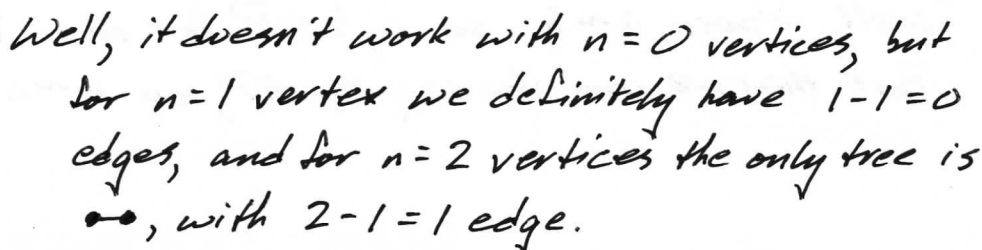 Well, it doesn't work with n = 0 vertices, but
for n = 1 vertex we definitely have 1 - 1 = 0
edges, and for n = 2 vertices the only tree is
, with 2 - 1 = 1 edge.